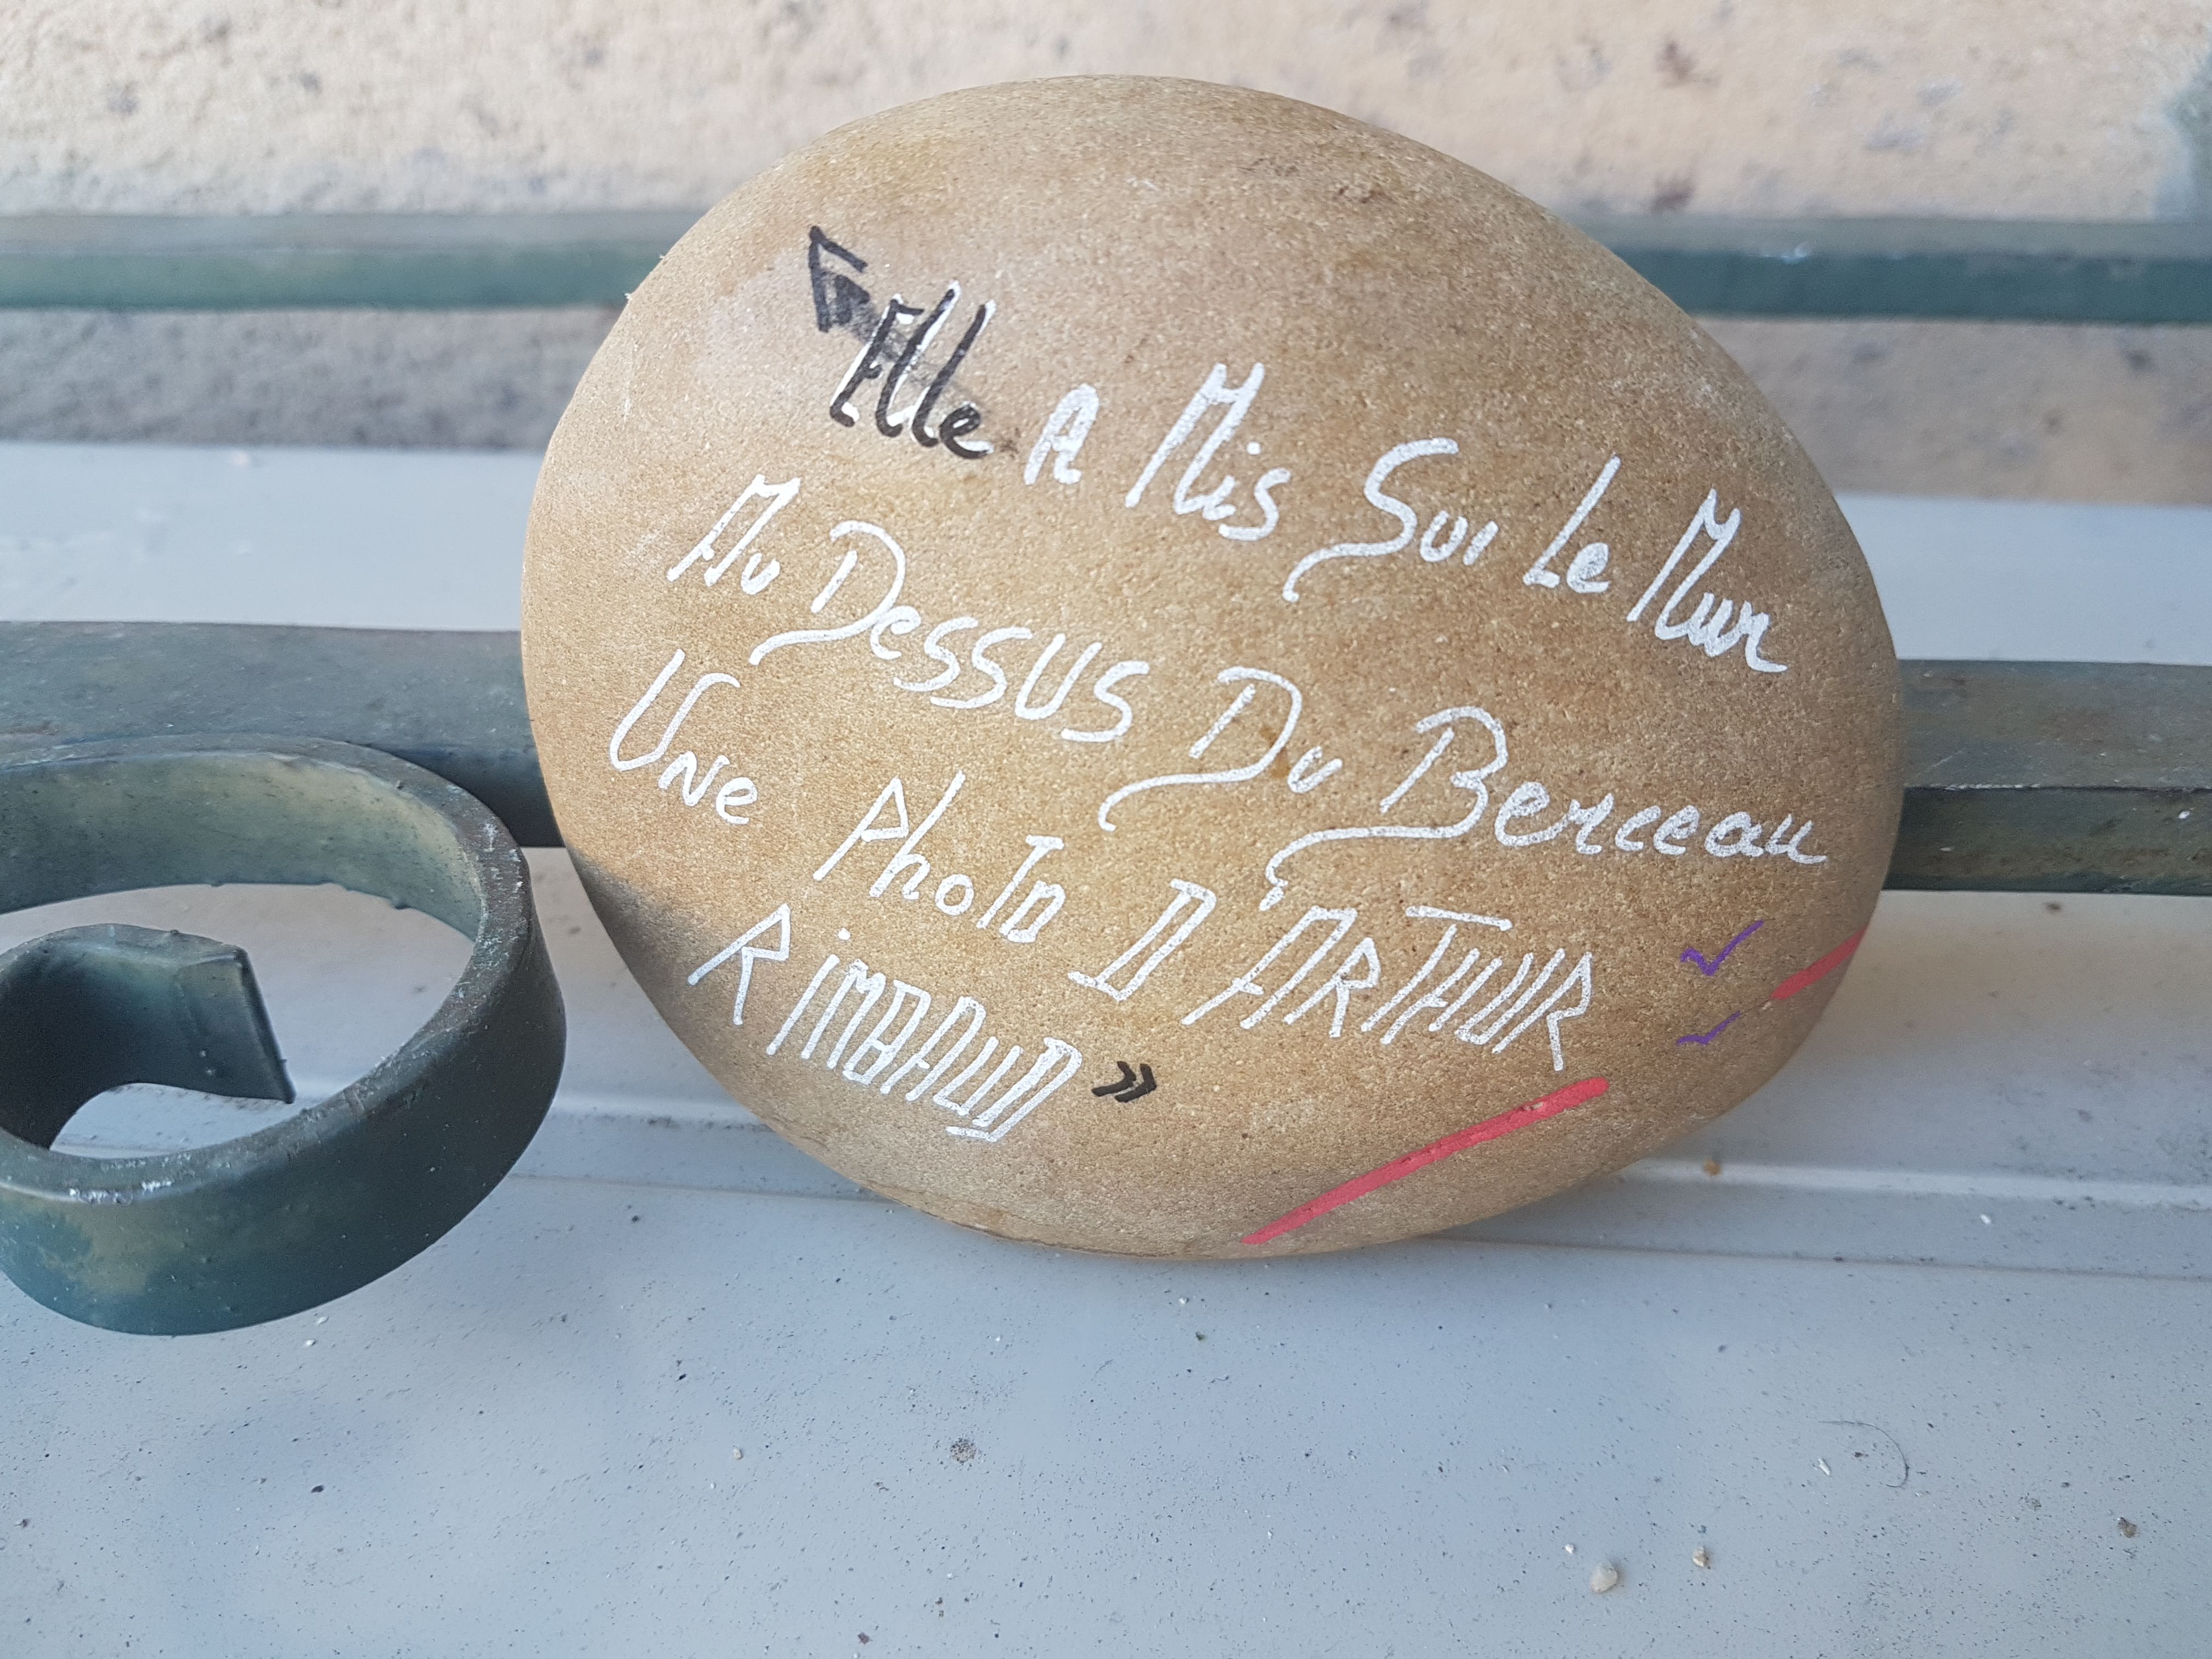 Elle A Mis Sur Le Mur
Au Dessus Du Berceau
Une Photo D'ARTHUR
RiMBAUD »